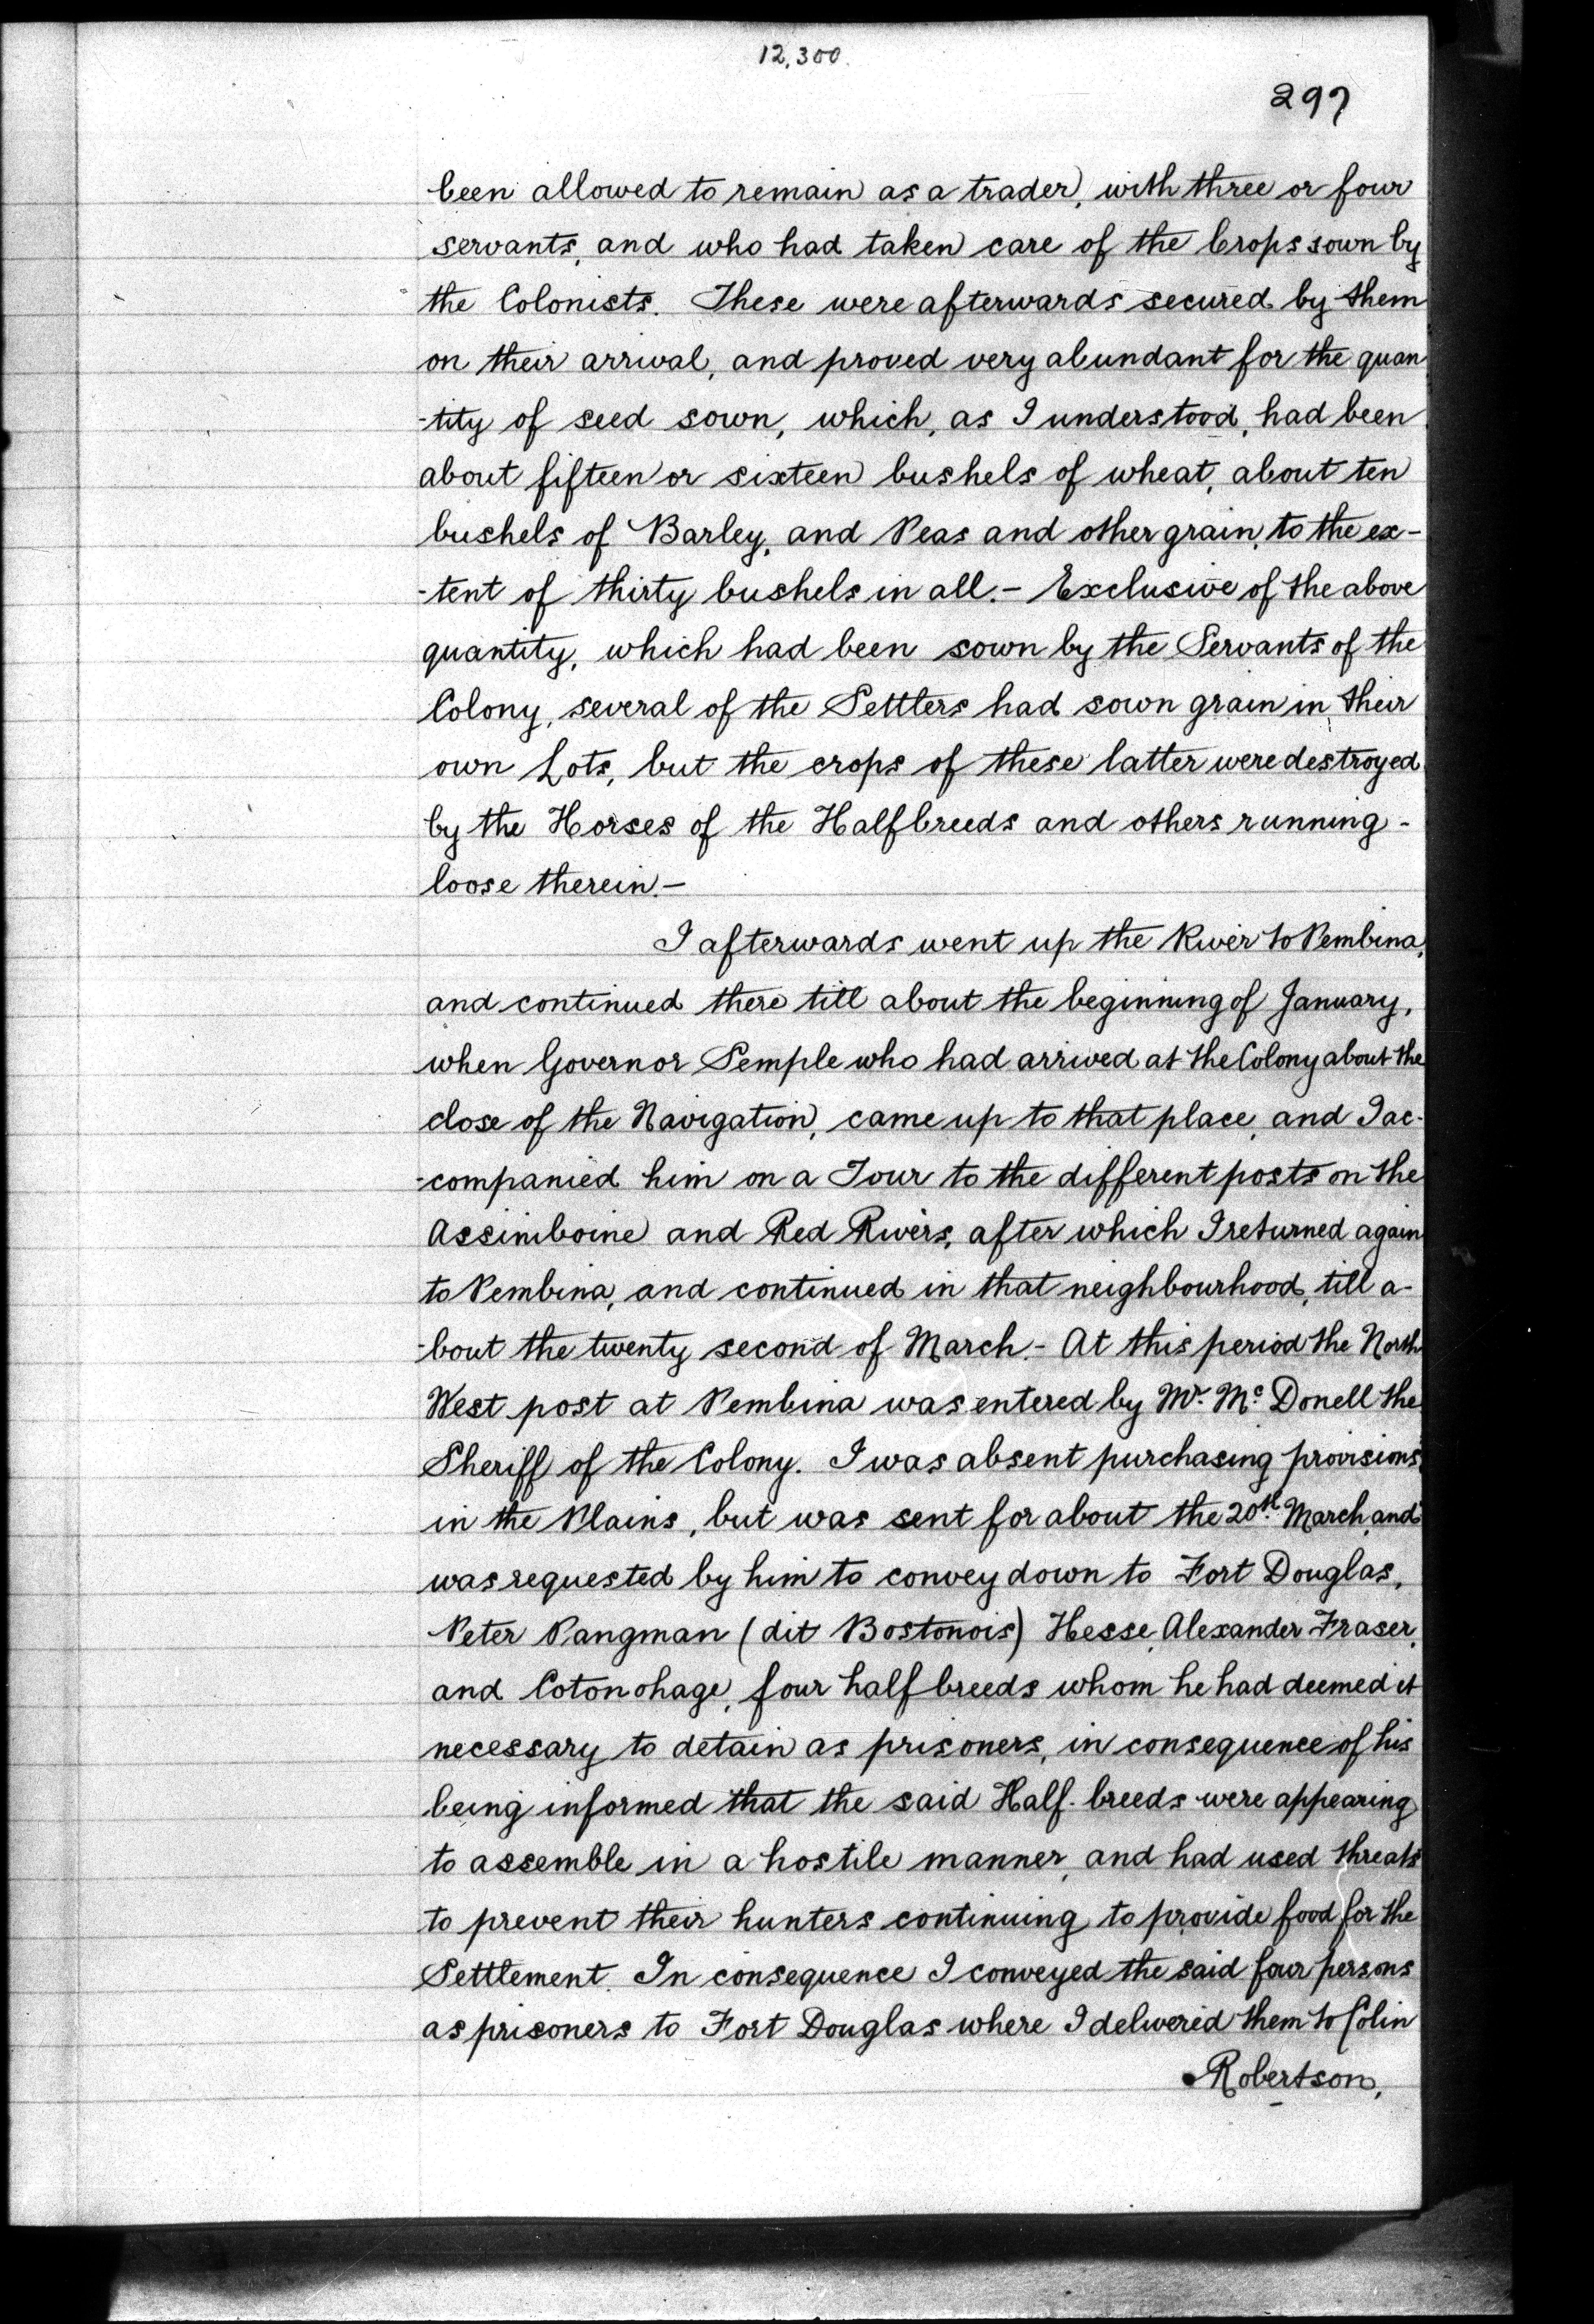 12,300.
297
been allowed to remain as a trader, with three or four
servants, and who had taken care of the Crops sown by
the Colonists. These were afterwards secured by them
on their arrival, and proved very abundant for the quan
-tity of seed sown, which, as I understood, had been
about fifteen or sixteen bushels of wheat, about ten
bushels of Barley, and Peas and other grain, to the ex-
-tent of thirty bushels in all.- Exclusive of the above
quantity, which had been sown by the Servants of the
Colony, several of the Settlers had sown grain in their
own Lots, but the crops of these latter were destroyed
by the Horses of the Halfbreeds and others running-
loose therein.-
I afterwards went up the River to Pembina,
and continued there till about the beginning of January,
when Governor Semple who had arrived at the Colony about the
close of the Navigation, came up to that place, and I ac-
-companied him on a Tour to the different posts on the
Assiniboine and Red Rivers, after which I returned again
to Pembina, and continued in that neighbourhood, till a-
-bout the twenty second of March.- At this period the North
West post at Pembina was entered by Mr. Mc Donell the
Sheriff of the Colony. I was absent purchasing provisions
in the Plains, but was sent for about the 20th. March, and
was requested by him to convey down to Fort Douglas,
Peter Pangman (dit Bostonois) Hesse, Alexander Fraser,
and Cotonohage, four half breeds whom he had deemed it
necessary to detain as prisoners, in consequence of his
being informed that the said Half-breeds were appearing
to assemble in a hostile manner, and had used threats
to prevent their hunters continuing to provide food for the
Settlement. In consequence I conveyed the said four persons
as prisoners to Fort Douglas where I delivered them to Colin
Robertson,